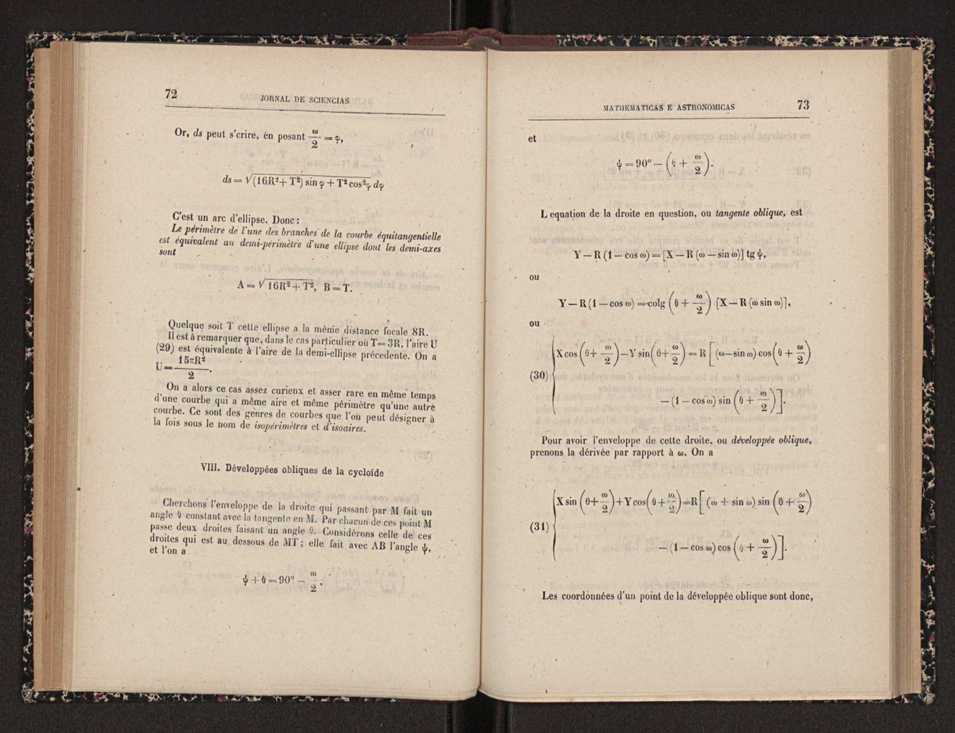 72
JORNAL DE SCIENCIAS
Or, ds peut s'crire, en posant ω/2 = φ,
ds = √(16R² + T²) sin φ + T² cos² φ dφ
C'est un arc d'ellipse. Donc :
Le périmètre de l'une des branches de la courbe équitangentielle
est équivalent au demi-périmètre d'une ellipse dont les demi-axes
sont
A = √16R² + T², B = T.
Quelque soit T cette ellipse a la même distance focale 8R.
Il est à remarquer que, dans le cas particulier où T = 3R, l'aire U
(29) est équivalente à l'aire de la demi-ellipse précedente. On a
U = 15πR²/2.
On a alors ce cas assez curieux et asser rare en même temps
d'une courbe qui a même aire et même périmètre qu'une autre
courbe. Ce sont des genres de courbes que l'on peut désigner à
la fois sous le nom de isopérimètres et d'isoaires.
VIII. Développées obliques de la cycloïde
Cherchons l'enveloppe de la droite qui passant par M fait un
angle θ constant avec la tangente en M. Par chacun de ces point M
passe deux droites faisant un angle θ. Considérons celle de ces
droites qui est au dessous de MT; elle fait avec AB l'angle ψ,
et l'on a
ψ + θ = 90° − ω/2.
MATHEMATICAS E ASTRONOMICAS
73
et
ψ = 90° − (θ + ω/2).
L equation de la droite en question, ou tangente oblique, est
Y − R (1 − cos ω) = [X − R (ω − sin ω)] tg ψ,
ou
Y − R (1 − cos ω) = colg (θ + ω/2) [X − R (ω sin ω)],
ou
X cos (θ + ω/2) − Y sin (θ + ω/2) = R [(ω − sin ω) cos (θ + ω/2)
(30)
− (1 − cos ω) sin (θ + ω/2)].
Pour avoir l'enveloppe de cette droite, ou développée oblique,
prenons la dérivée par rapport à ω. On a
X sin (θ + ω/2) + Y cos (θ + ω/2) = R [(ω + sin ω) sin (θ + ω/2)
(31)
− (1 − cos ω) cos (θ + ω/2)].
Les coordonnées d'un point de la développée oblique sont donc,